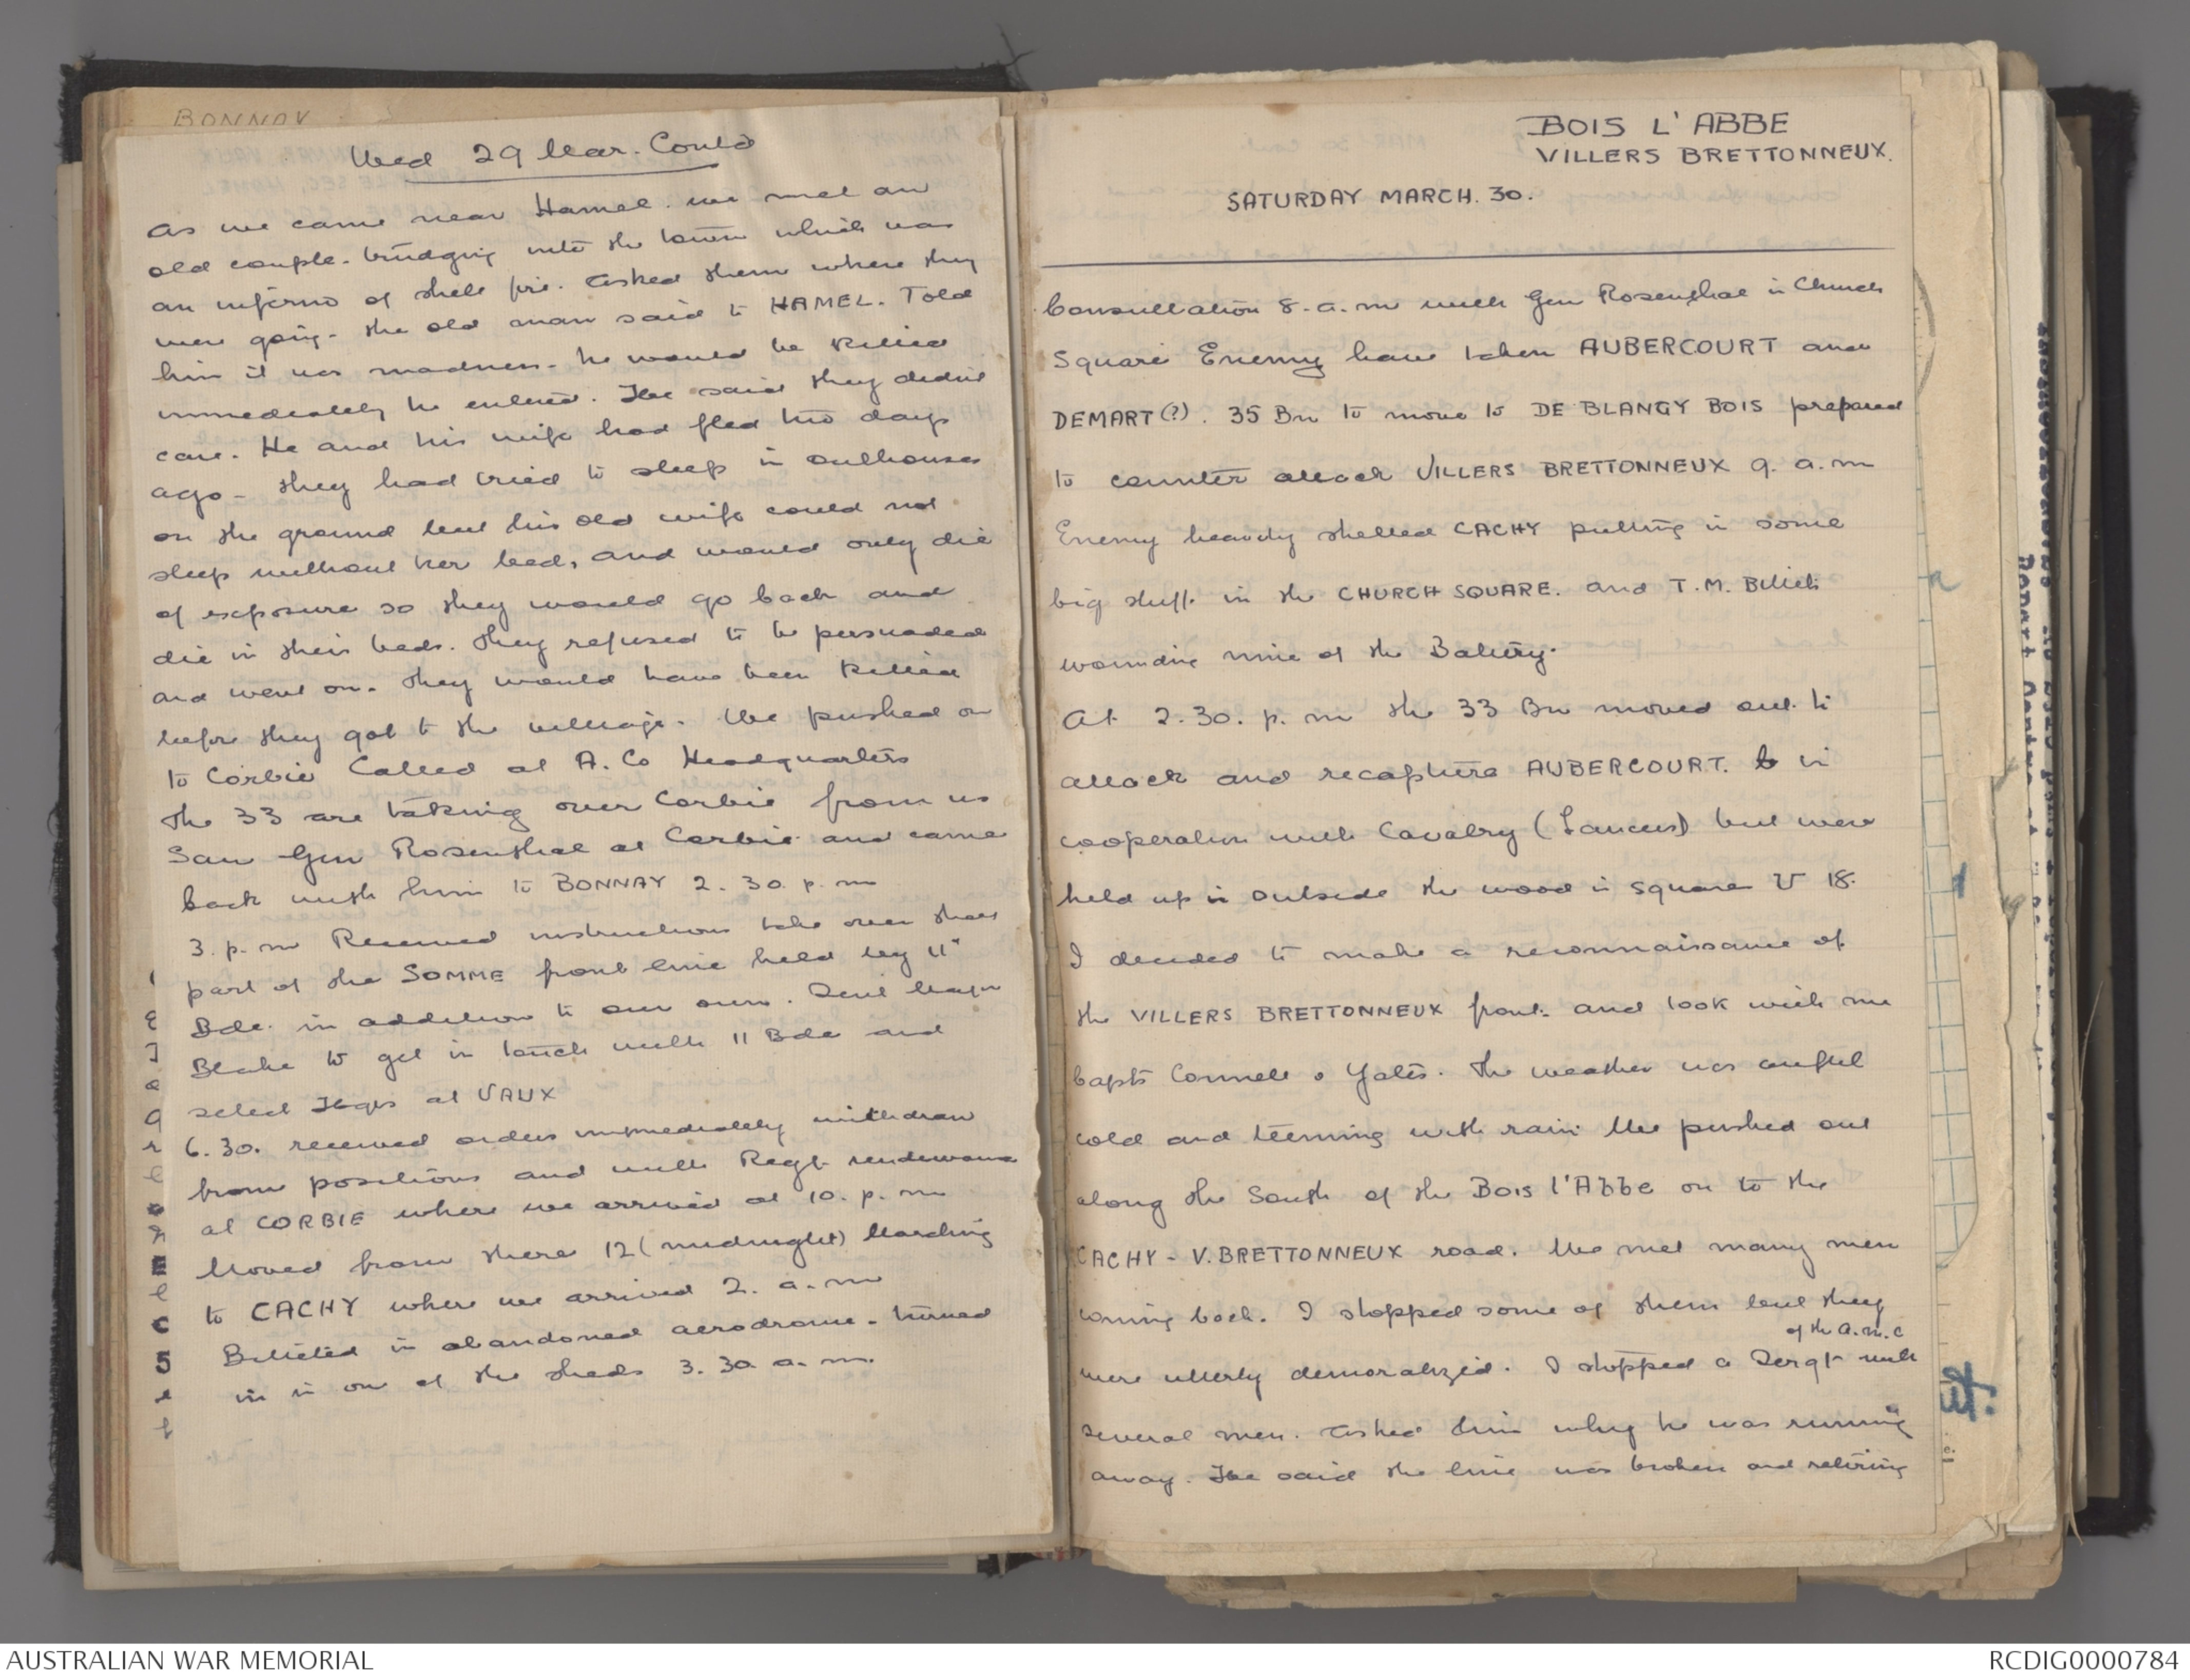 BONNAY
Wed 29 Mar. Contd
As we came near Hamel. we met an
old couple. trudging into the town which was
an inferno of shell fire. Asked them where they
were going. the old man said to HAMEL. Told
him it was madness. he would be killed
immediately he entered. He said they didnt
care. He and his wife had fled two days
ago - they had tried to sleep in outhouses
on the ground but his old wife could not
sleep without her bed, and would only die
of exposure so they would go back and
die in their beds. They refused to be persuaded
and went on. They would have been killed
before they got to the village. We pushed on
to Corbie Called at A. Co Headquarters
The 33 are taking over Corbie from us
Saw Gen Rosenthal at Corbie and came
back with him to BONNAY 2. 30. p. m
3. p. m Received instructions take over
part of the SOMME front line held by 11"
Bde. in addition to our own. Sent Major
Blake to get in touch with 11 Bde and
select Hqrs at VAUX
6. 30. received orders immediately withdraw
from positions and with Regt rendezvous
at CORBIE where we arrived at 10. p. m
Moved from there 12 (midnight) Marching
to CACHY where we arrived 2. a. m
Billeted in abandoned aerodrome - turned
in in one of the sheds 3. 30. a. m.
BOIS L' ABBE
VILLERS BRETTONNEUX.
SATURDAY MARCH. 30.
Consultation 8. a. m with Gen Rosenthal in Church
Square Enemy have taken AUBERCOURT and
DEMART (?). 35 Bn to move to DE BLANGY BOIS prepared
to counter attack VILLERS BRETTONNEUX 9. a. m
Enemy heavily shelled CACHY putting in some
big stuff in the CHURCH SQUARE. and T. M. Billets
wounding nine of the Battery.
At 2. 30. p. m the 33 Bn moved out to
attack and recapture AUBERCOURT. in
cooperation with Cavalry (Lancers) but were
held up outside the wood in square V 18.
I decided to make a reconnaissance of
the VILLERS BRETTONNEUX front. and took with me
Capts Connell & Yates. The weather was awful
cold and teeming with rain. We pushed out
along the South of the Bois l'Abbe on to the
CACHY - V. BRETTONNEUX road. We met many men
coming back. I stopped some of them but they
were utterly demoralized. I stopped a Sergt of the A. M. C with
several men. Asked him why he was running
away. He said the line was broken and retiring
AUSTRALIAN WAR MEMORIAL
RCDIG0000784